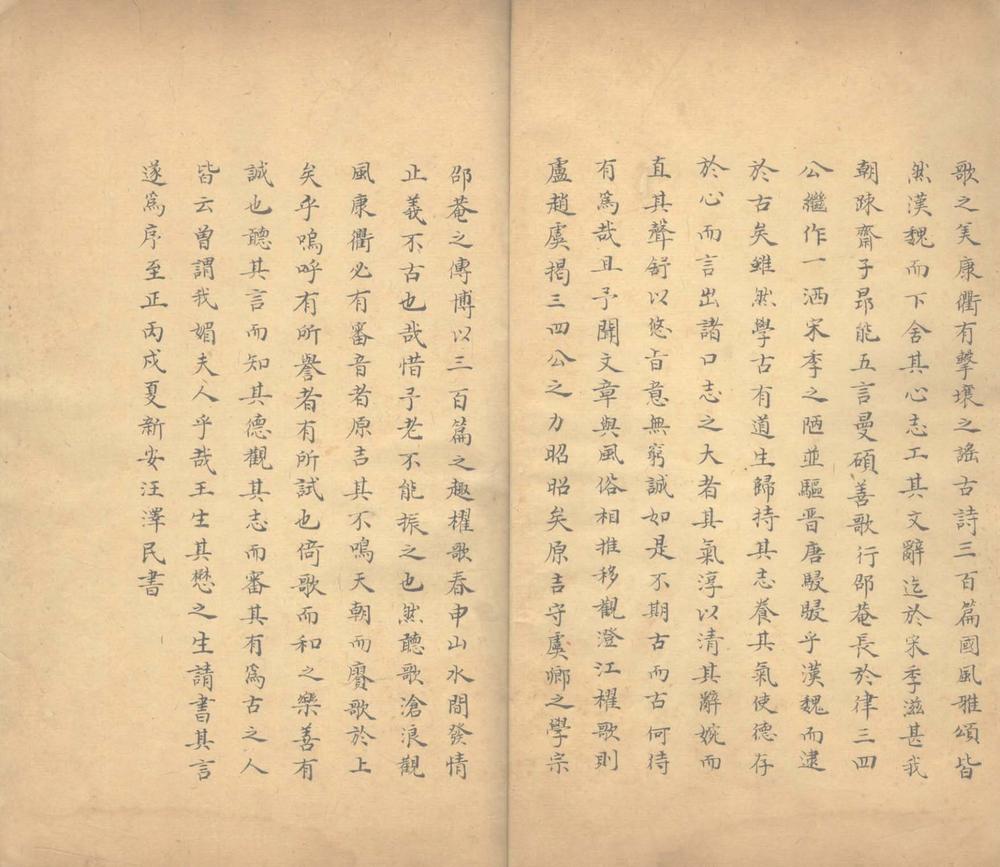 歌之美康衢有擊壤之謠古詩三百篇國風雅頌皆
然漢魏而下舍其心志工其文辭迄於宋季滋甚我
朝踈齋子昂能五言曼碩善歌行邵菴長於律三四
公繼作一洒宋季之陋並驅晋唐駸駸乎漢魏而逮
於古矣雖然學古有道生歸持其志養其氣使德存
於心而言出諸口志之大者其氣淳以清其辭婉而
直其聲舒以悠旨意無窮誠如是不期古而古何待
有為哉且予聞文章與風俗相推移觀澄江櫂歌則
盧趙虞揭三四公之力昭昭矣原吉守虞鄉之學宗
邵菴之傳博以三百篇之趣櫂歌春申山水間發情
止義不古也哉惜予老不能振之也然聽歌滄浪觀
風康衢必有審音者原吉其不鳴天朝而賡歌於上
矣乎嗚呼有所譽者有所試也倚歌而和之樂善有
誠也聽其言而知其德觀其志而審其有為古之人
皆云曾謂我媚夫人乎哉王生其懋之生請書其言
遂為序至正丙戌夏新安汪澤民書